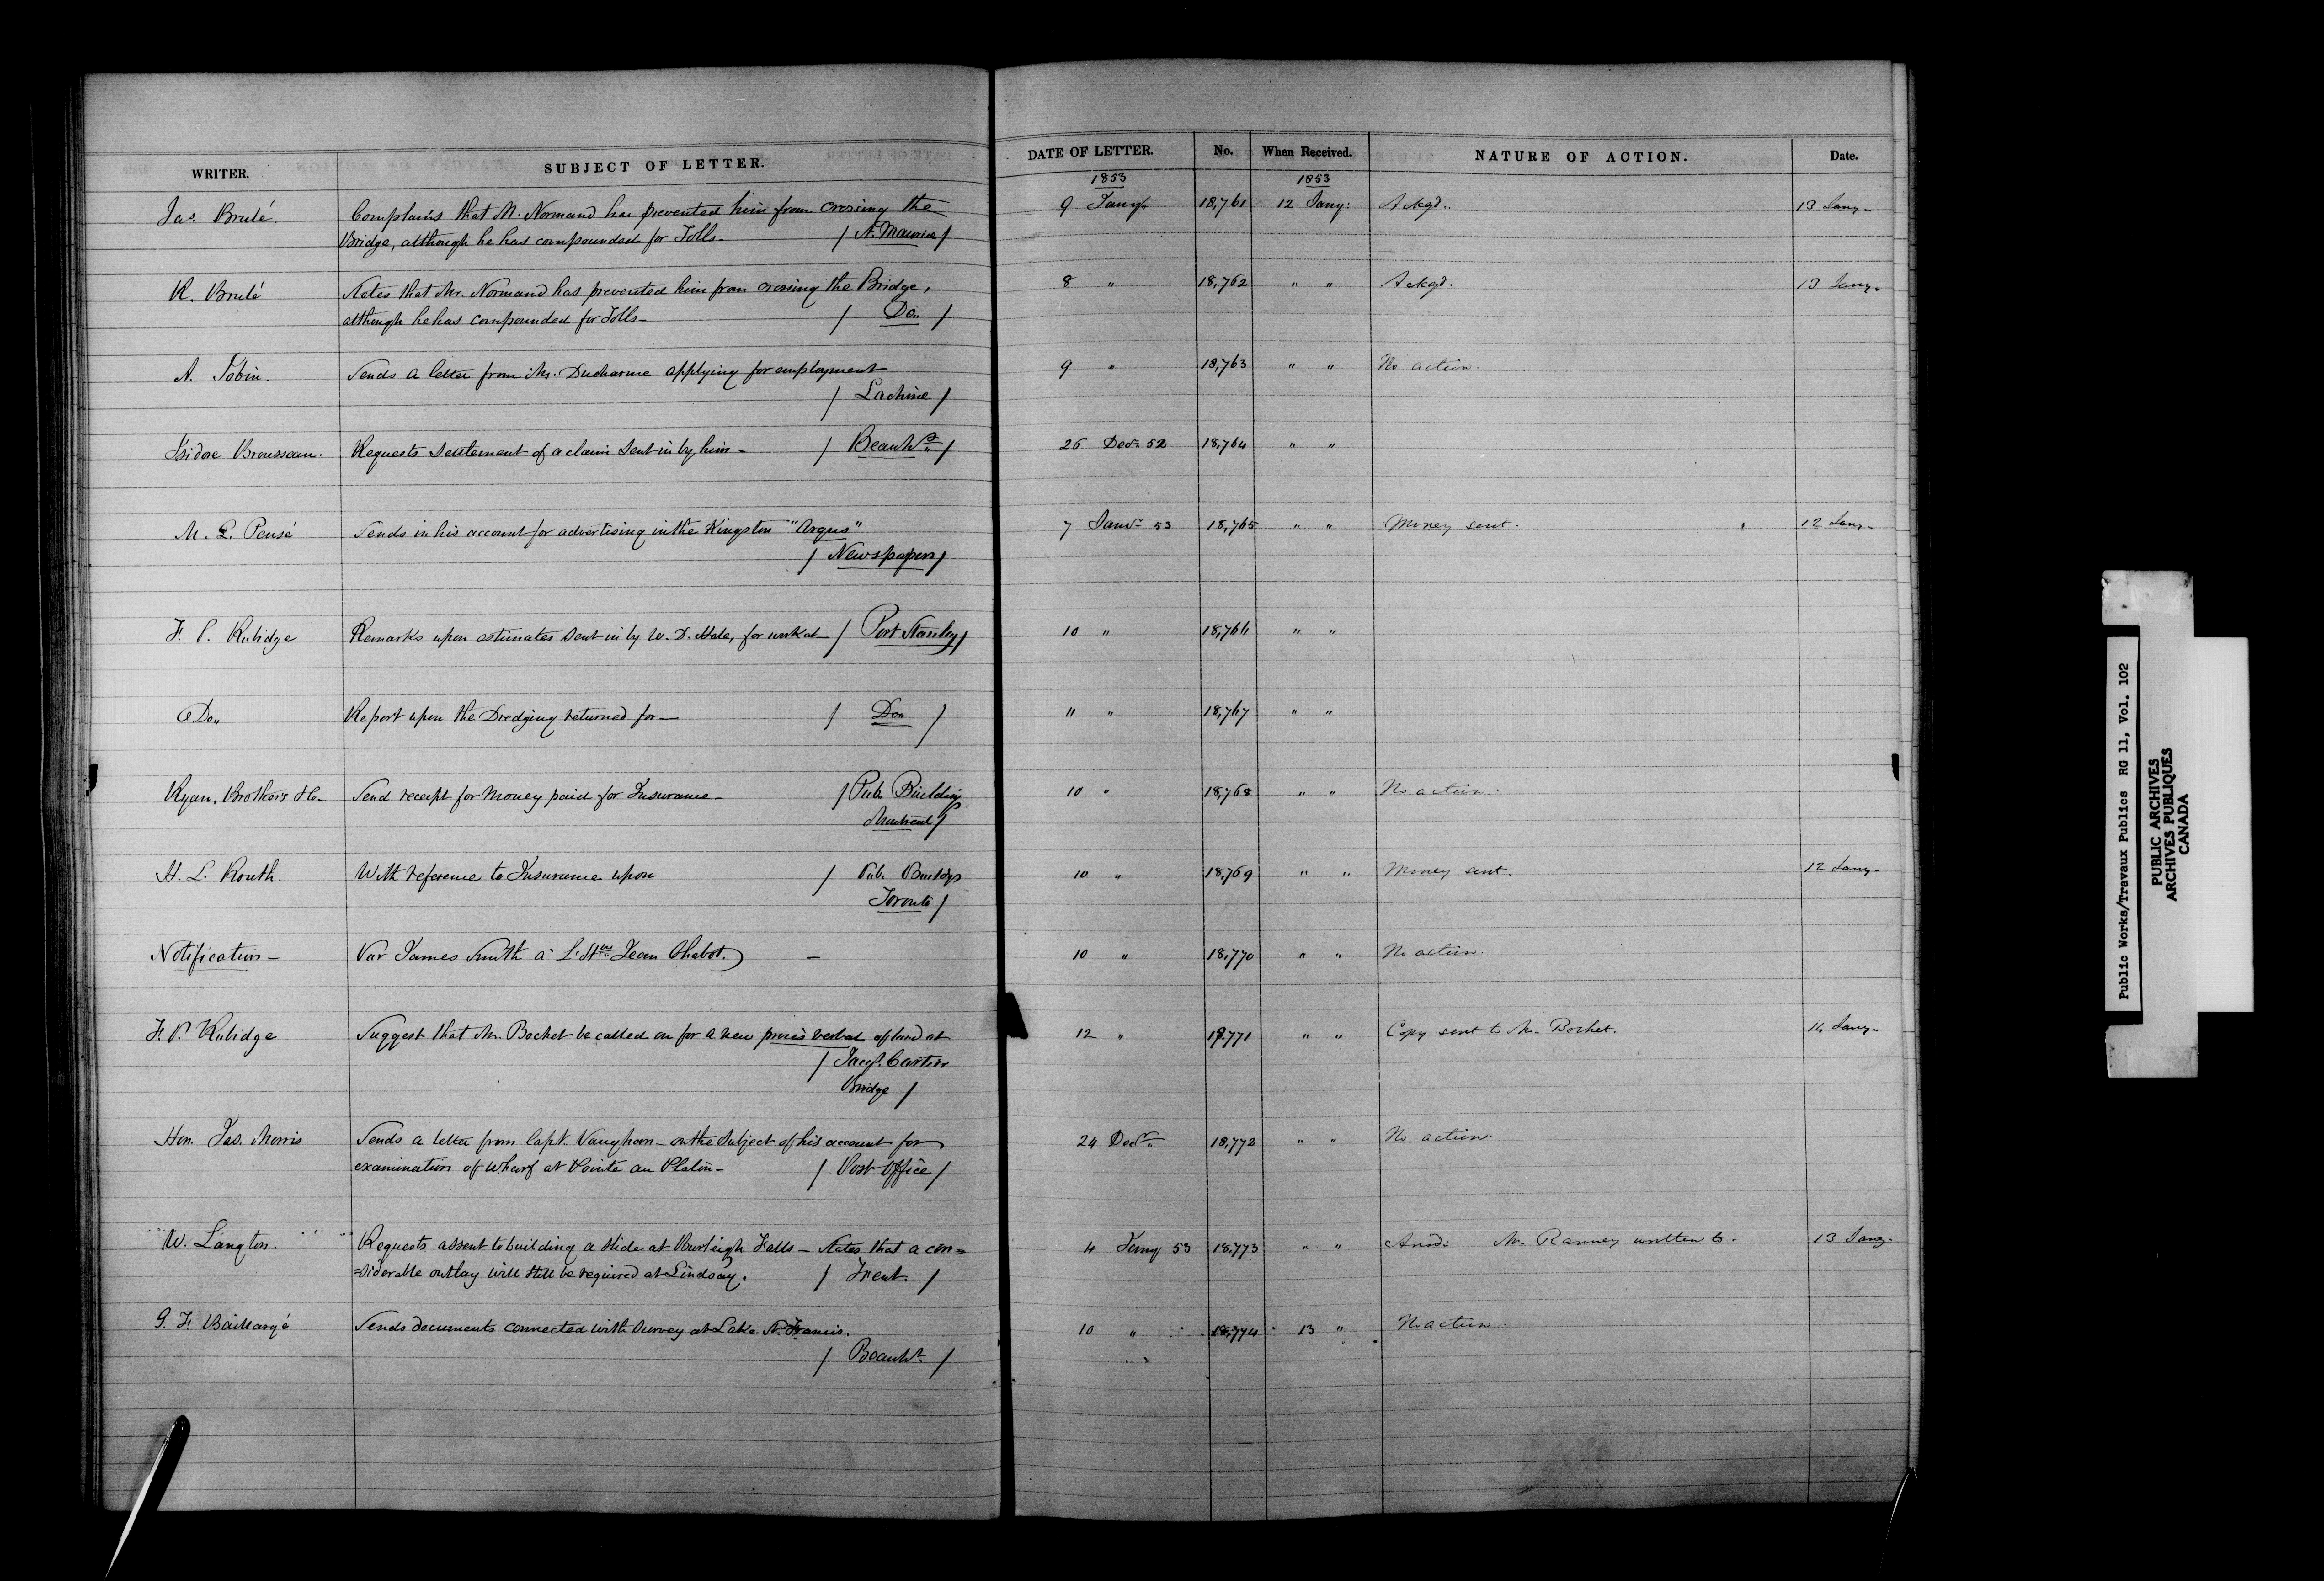 WRITER. SUBJECT OF LETTER. DATE OF LETTER. No. When Received. NATURE OF ACTION. Date.
1853 1853
Jas. Brulé. Complains that M. Normand has prevented him from crossing the 9 Jany 18,761 12 Jany: Ackgd.. 13 Jany-
Bridge, although he has compounded for Tolls- / St. Maurice /
R. Brulé States that Mr. Normand has prevented him from crossing the Bridge, 8 " 18,762 " " Ackgd. 13 Jany-
although he has compounded for Tolls- / Do. /
A. Tobin. Sends a letter from Mr. Ducharme applying for employment 9 " 18,763 " " No action.
/ Lachine /
Isidore Brousseau. Requests settlement of a claim sent in by him- / Beauhs. / 26 Decr. 52 18,764 " "
M. L. Pensé Sends in his account for advertising in the Kingston "Argus" 7 Jany 53 18,765 " " Money sent. 12 Jany-
/ Newspapers /
F. P. Rubidge Remarks upon estimates sent in by W. D. Hale, for work at- / Port Stanley / 10 " 18,766 " "
Do. Report upon the Dredging returned for- / Do. / 11 " 18,767 " "
Ryan, Brothers &c- Send receipt for Money paid for Insurance- / Pub. Buildings 10 " 18,768 " " No action.
Montreal /
H. L. Routh. With reference to Insurance upon / Pub. Buildgs 10 " 18,769 " " Money sent. 12 Jany-
Toronto /
Notification- Par James Smith à L'Hble Jean Chabot. - 10 " 18,770 " " No action.
F. P. Rubidge Suggest that Mr. Bochet be called on for a new procès verbal of land at 12 " 18,771 " " Copy sent to Mr. Bochet. 14 Jany-
/ Jacqs. Cartier
Bridge /
Hon. Jas. Morris Sends a letter from Capt. Vaughan- on the Subject of his account for 24 Decr. " 18,772 " " No action.
examination of Wharf at Pointe au Platon- / Post Office /
W. Langton. Requests assent to building a slide at Burleigh Falls- States that a con= 4 Jany 53 18,773 " " Ansd: Mr. Ranney written to. 13 Jany-
=siderable outlay will still be required at Lindsay. / Trent. /
G. F. Baillargé Sends documents connected with Survey at Lake St. Francis. 10 " 18,774 13 " No action.
/ Beauhs. /
Public Works/Travaux Publics RG 11, Vol. 102
PUBLIC ARCHIVES
ARCHIVES PUBLIQUES
CANADA